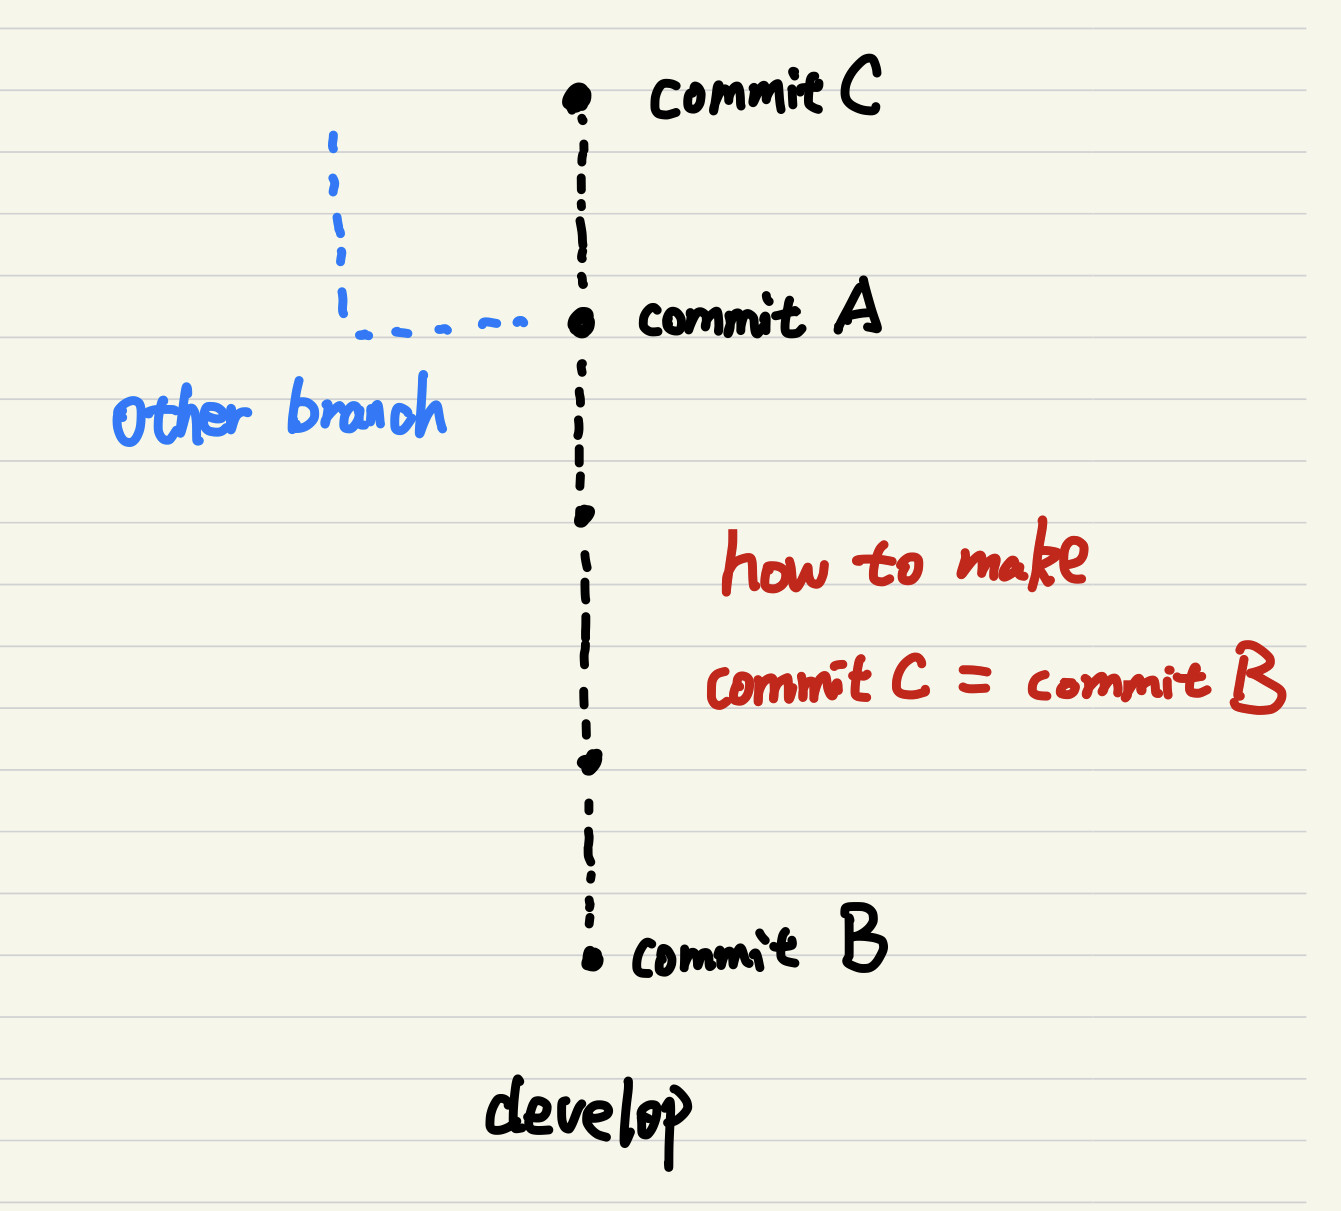 commit C
commit A
other branch
how to make
commit C = commit B
commit B
develop